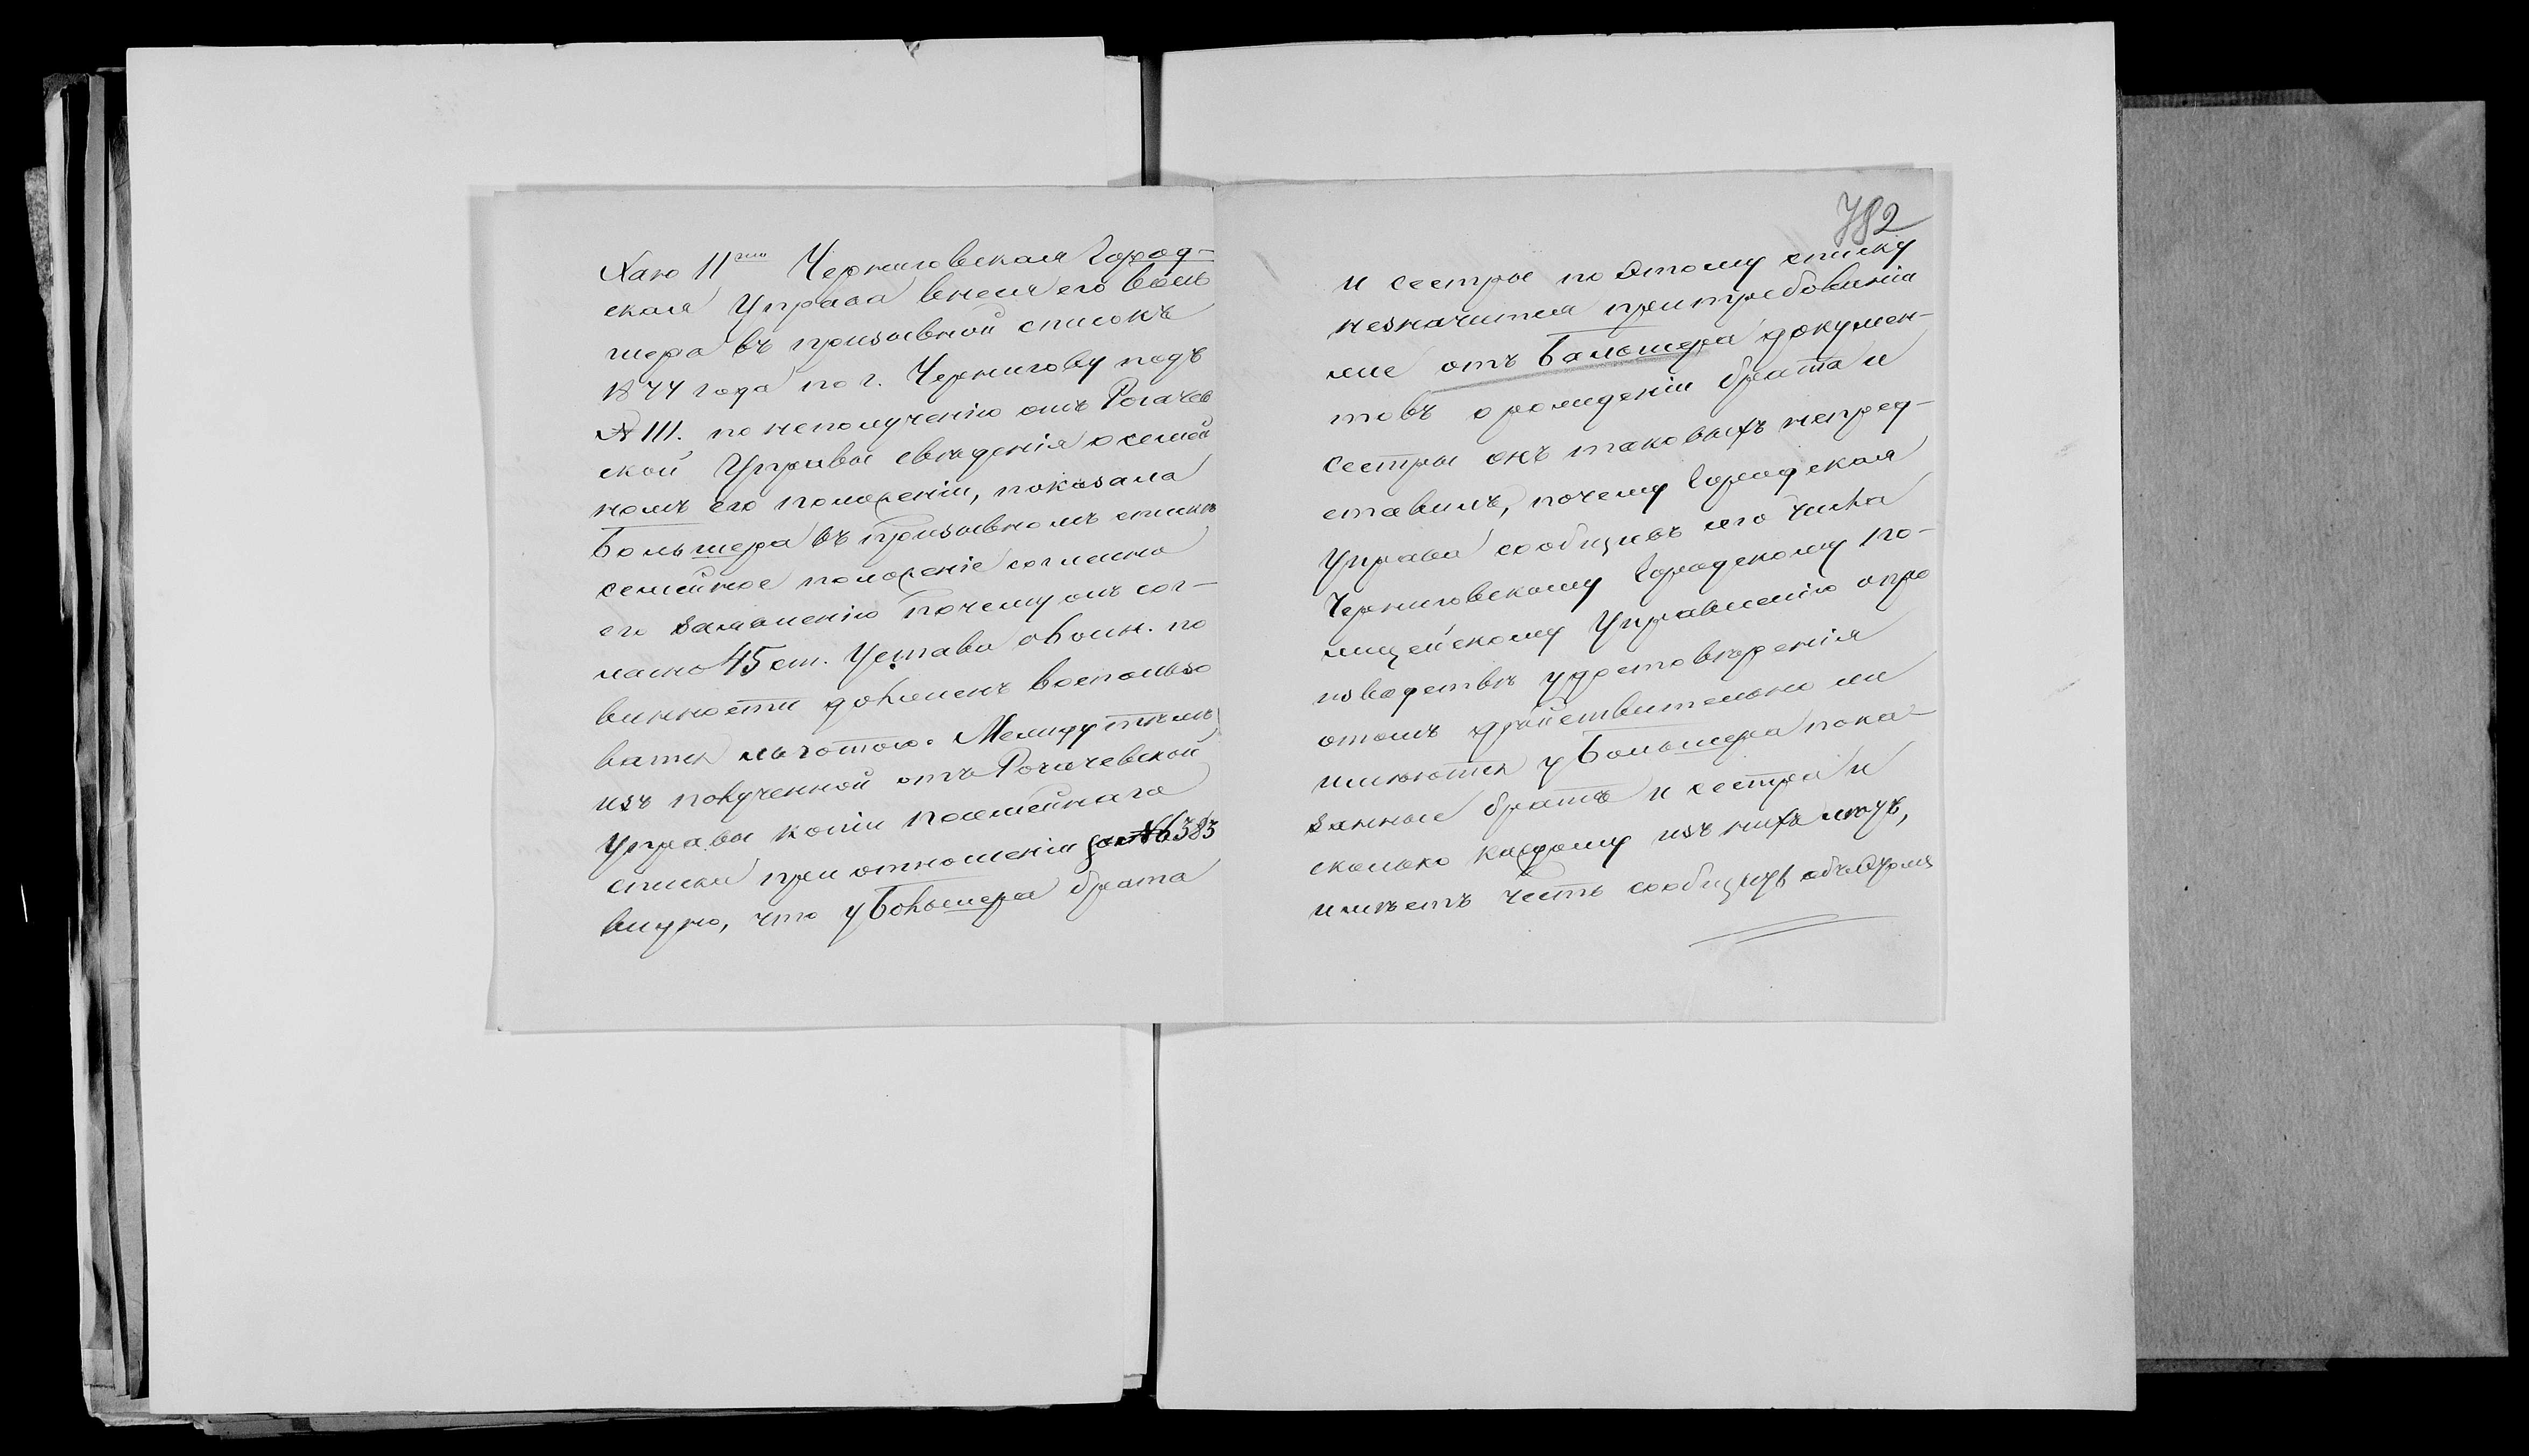 Хаю 11ти Черниговская Город-
ская Управа внеся его Боль
шера въ призывной списокъ
1877 года по г. Чернигову подъ
№ 111. по неполученію отъ Рогачев
ской Управы свѣдѣнія о семей
номъ его положеніи, показала
Большера въ призывномъ спискѣ
семейное положеніе согласно
его заявленію почему онъ сог-
ласно 45 ст. Устава о воин. по
винности долженъ воспользо
ватся льготою. Между тѣмъ
изъ полученной отъ Рогачевской
Управы копіи посемейнаго
списка при отношеніи за № 6383
видно, что у Большера брата
782
и сестры по этому списку
незначится при требованіи
же отъ Большера докумен-
товъ о рожденіи брата и
сестры онъ таковыхъ непред-
ставилъ, почему Городская
Управа сообщивъ 1го числа
Черниговскому Городскому По-
лицейскому Управленію о про
изводствѣ удостовѣренія
отомъ дѣйствительно ли
имѣются у Большера пока-
занные братъ и сестра и
сколько каждому изъ нихъ лѣтъ,
имѣетъ честь сообщить объ этомъ